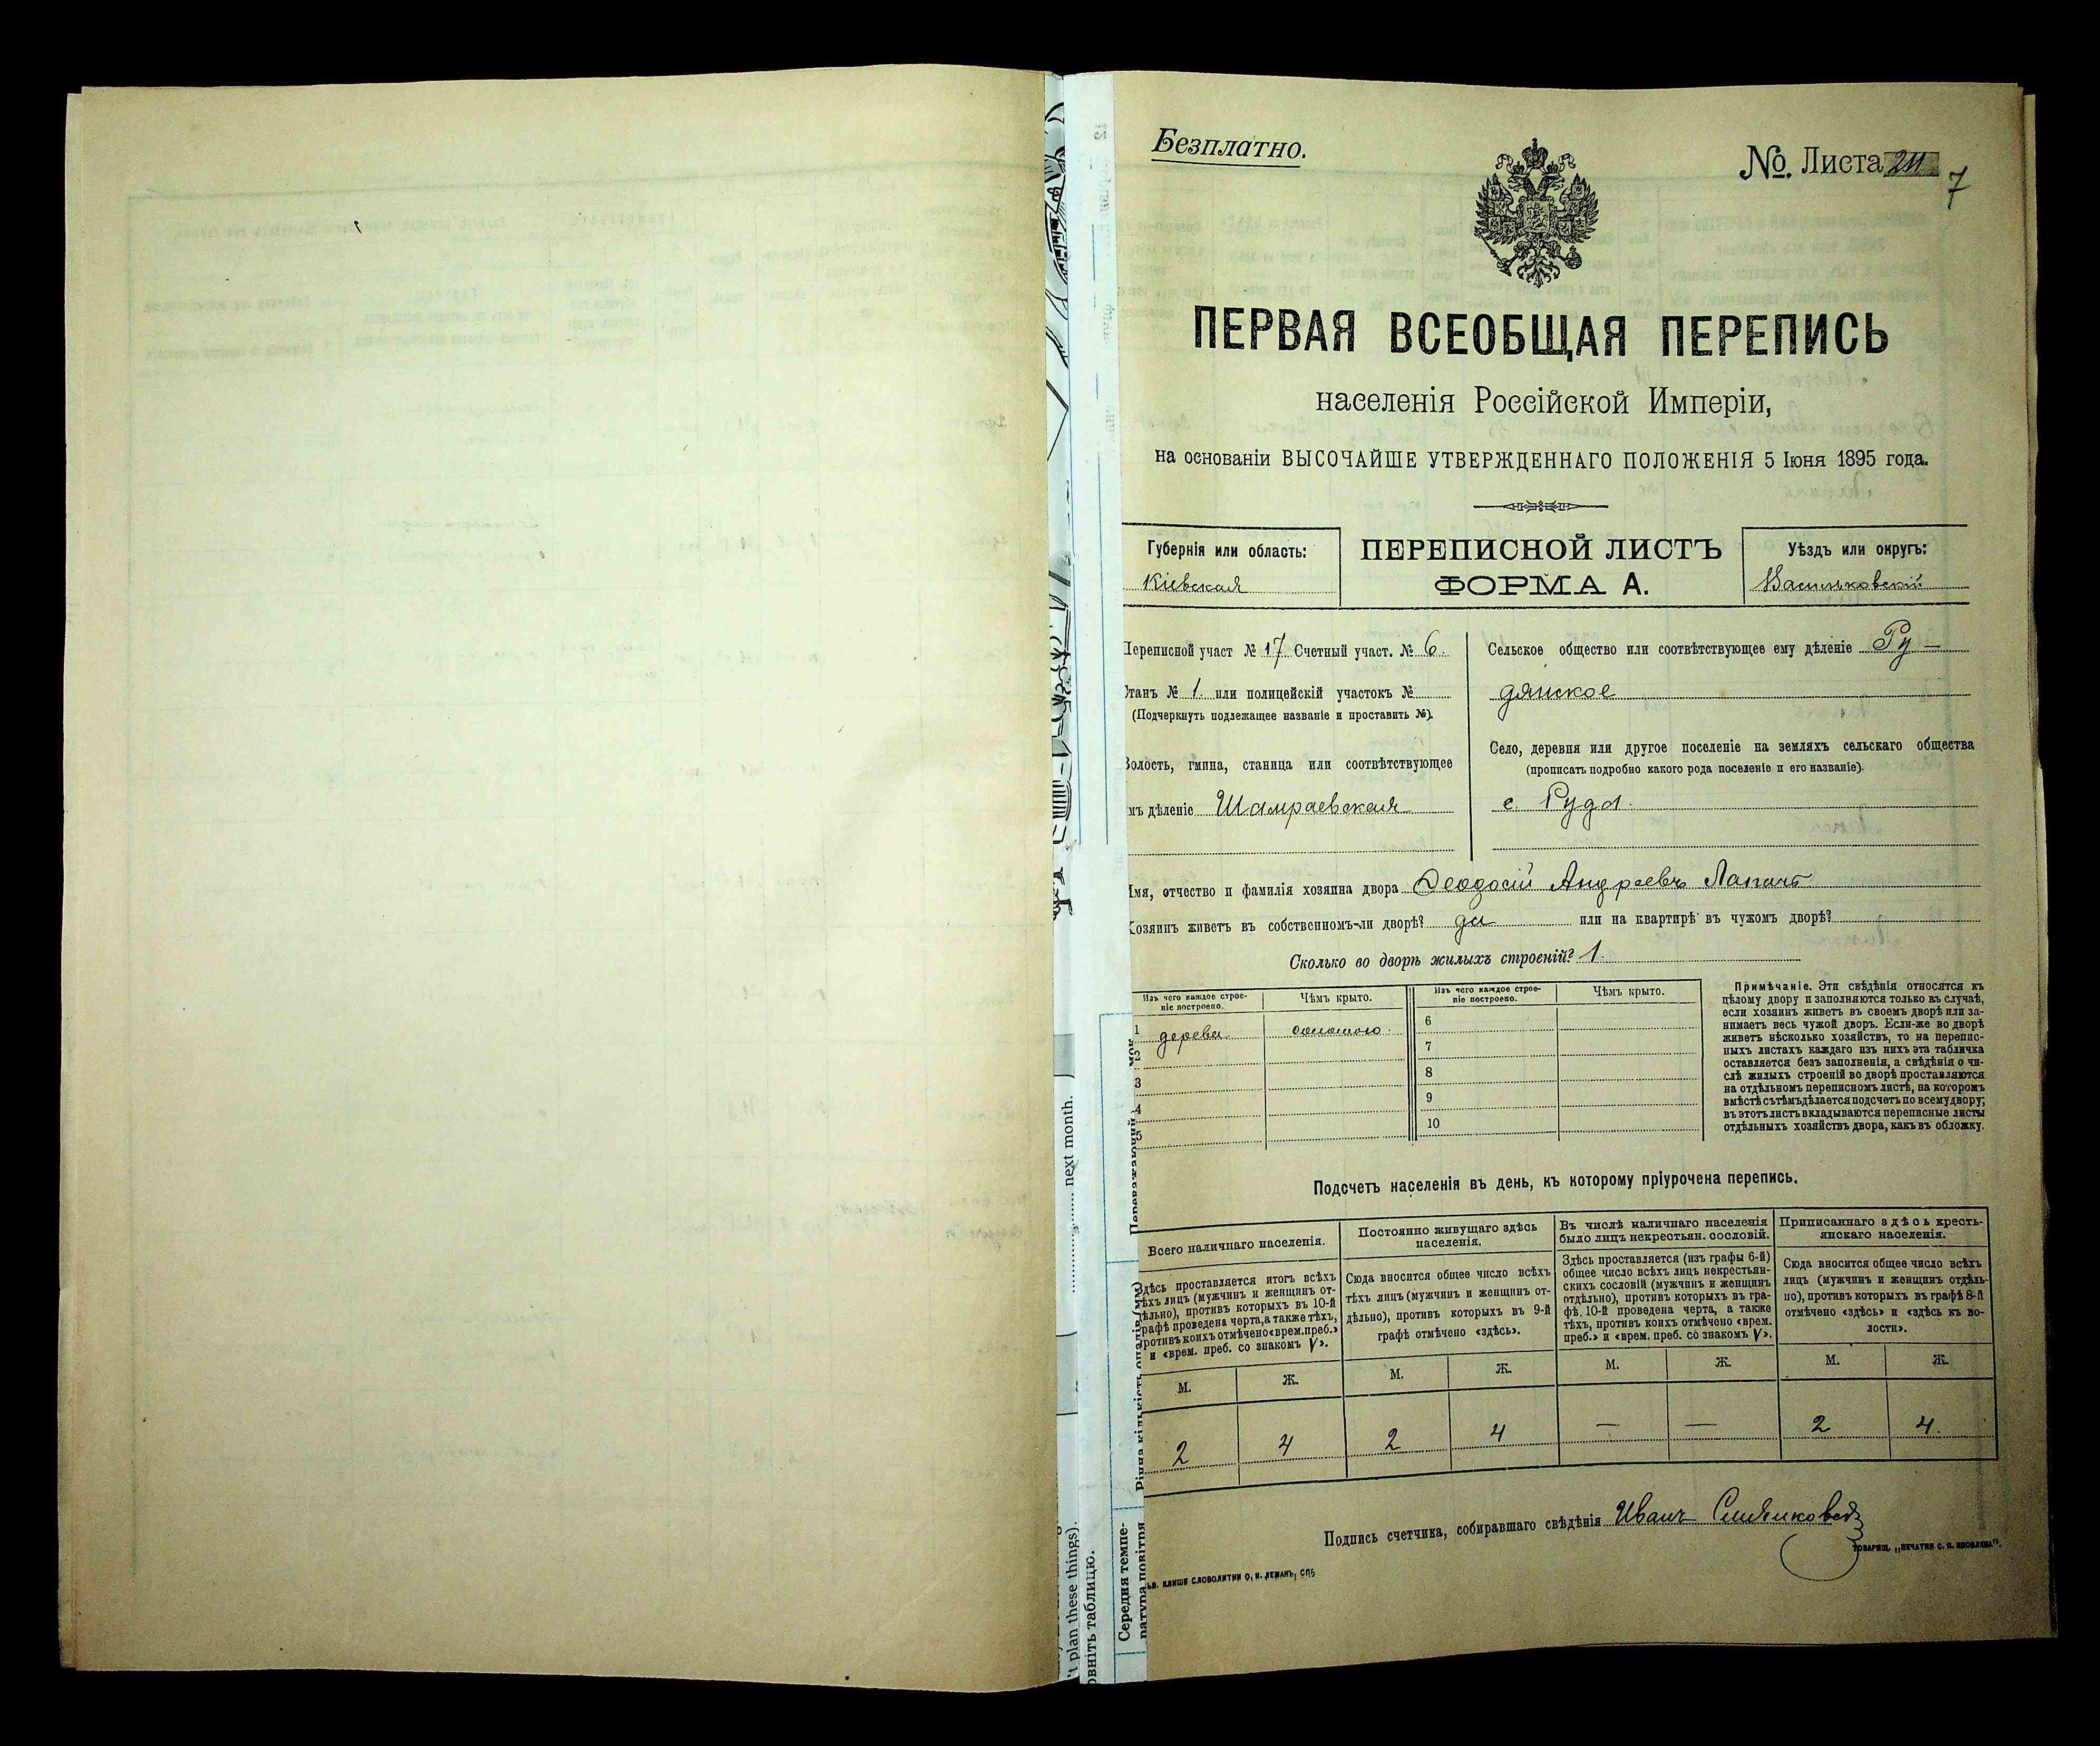 Безплатно.
№. Листа 211
7
ПЕРВАЯ ВСЕОБЩАЯ ПЕРЕПИСЬ
населенія Россійской Имперіи,
на основаніи ВЫСОЧАЙШЕ УТВЕРЖДЕННАГО ПОЛОЖЕНІЯ 5 Іюня 1895 года.
Губернія или область:
Кіевская
ПЕРЕПИСНОЙ ЛИСТЪ
ФОРМА А.
Уѣздъ или округъ:
Васильковскій
Переписной участ № 17 Счетный участ. № 6.
Станъ № 1. или полицейскій участокъ №
(Подчеркнуть подлежащее названіе и проставить №).
Волость, гмина, станица или соотвѣтствующее
имъ дѣленіе Шамраевская
Сельское общество или соотвѣтствующее ему дѣленіе Ру-
дянское
Село, деревня или другое поселеніе на земляхъ сельскаго общества
(прописать подробно какого рода поселеніе и его названіе).
с. Руда.
Имя, отчество и фамилія хозяина двора Феодосій Андреевъ Лапачъ
Хозяинъ живетъ въ собственномъ-ли дворѣ? да или на квартирѣ въ чужомъ дворѣ?
Сколько во дворѣ жилыхъ строеній? 1.
Изъ чего каждое строе-
ніе построено.
Чѣмъ крыто.
Изъ чего каждое строе-
ніе построено.
Чѣмъ крыто.
1 дерева соломою.
2
3
4
5
6
7
8
9
10
Примѣчаніе. Эти свѣдѣнія относятся къ
цѣлому двору и заполняются только въ случаѣ,
если хозяинъ живетъ въ своемъ дворѣ или за-
нимаетъ весь чужой дворъ. Если-же во дворѣ
живетъ нѣсколько хозяйствъ, то на перепис-
ныхъ листахъ каждаго изъ нихъ эта табличка
оставляется безъ заполненія, а свѣдѣнія о чи-
слѣ жилыхъ строеній во дворѣ проставляются
на отдѣльномъ переписномъ листѣ, на которомъ
вмѣстѣ сътѣмъ дѣлается подсчетъ по всему двору;
въ этотъ листъ вкладываются переписные листы
отдѣльныхъ хозяйствъ двора, какъ въ обложку.
Подсчетъ населенія въ день, къ которому пріурочена перепись.
Всего наличнаго населенія.
Здѣсь проставляется итогъ всѣхъ
тѣхъ лицъ (мужчинъ и женщинъ от-
дѣльно), противъ которыхъ въ 10-й
графѣ проведена черта, а также тѣхъ,
противъ коихъ отмѣчено «врем. преб.»
и «врем. преб. со знакомъ V».
Постоянно живущаго здѣсь
населенія.
Сюда вносится общее число всѣхъ
тѣхъ лицъ (мужчинъ и женщинъ от-
дѣльно), противъ которыхъ въ 9-й
графѣ отмѣчено «здѣсь».
Въ числѣ наличнаго населенія
было лицъ некрестьян. сословій.
Здѣсь проставляется (изъ графы 6-й)
общее число всѣхъ лицъ некрестьян-
скихъ сословій (мужчинъ и женщинъ
отдѣльно), противъ которыхъ въ гра-
фѣ 10-й проведена черта, а также
тѣхъ, противъ коихъ отмѣчено «врем.
преб.» и «врем. преб. со знакомъ V».
Приписаннаго здѣсь кресть-
янскаго населенія.
Сюда вносится общее число всѣхъ
лицъ (мужчинъ и женщинъ отдѣль-
но), противъ которыхъ въ графѣ 8-й
отмѣчено «здѣсь» и «здѣсь къ во-
лости».
М. Ж. М. Ж. М. Ж. М. Ж.
2 4 2 4 — — 2 4.
Подпись счетчика, собиравшаго свѣдѣнія Иванъ
КЛИШЕ СЛОВОЛИТНИ О. И. ЛЕМАНЪ, СПБ
ТОВАРИЩ. „ПЕЧАТНЯ С. П. ЯКОВЛЕВА“.
next month.
't plan these things).
овніть таблицю.
Середня темпе-
ратура повітря
Річна кількість опадів (мм)
Переважаючий